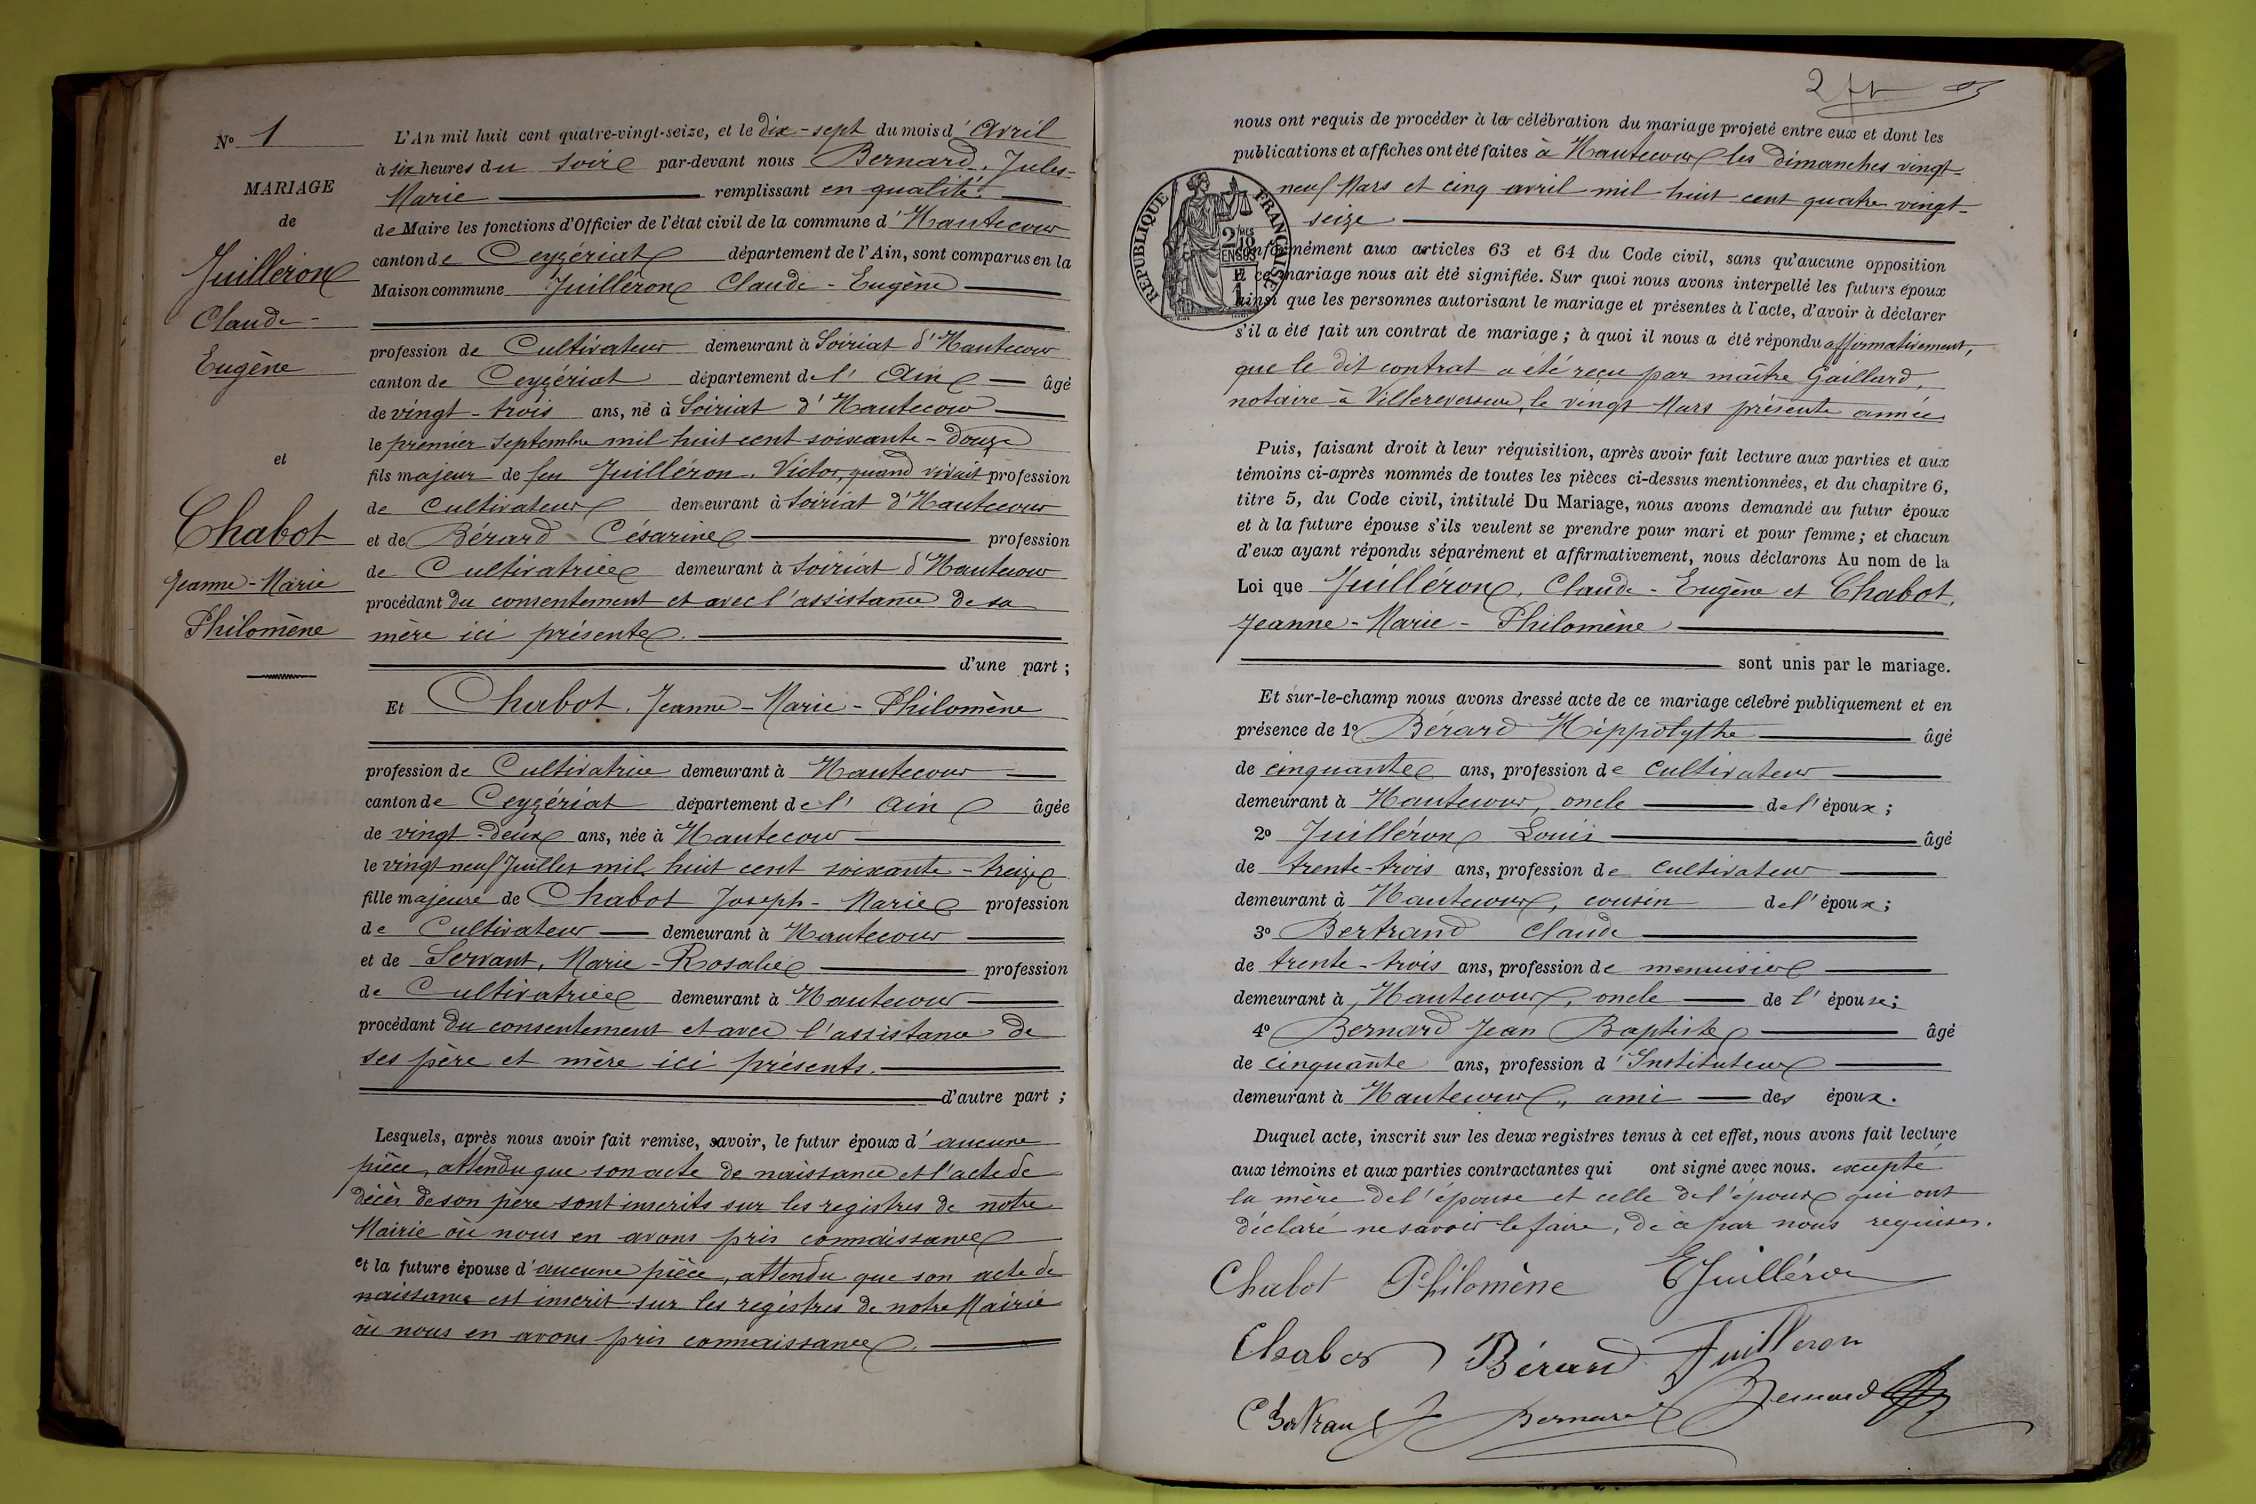 No 1
MARIAGE
de
Juilléron
Claude-
Eugène
et
Chabot
Jeanne-Marie
Philomène
L'An mil huit cent quatre-vingt-seize, et le dix-sept du mois d'Avril
à six heures du soir par-devant nous Bernard, Jules-
Marie remplissant en qualité
de Maire les fonctions d'Officier de l'état civil de la commune d'Hautecour
canton de Ceyzériat département de l'Ain, sont comparus en la
Maison commune Juilléron Claude-Eugène
profession de Cultivateur demeurant à Soiriat d'Hautecour
canton de Ceyzériat département de l'Ain âgé
de vingt-trois ans, né à Soiriat d'Hautecour
le premier septembre mil huit cent soixante-douze
fils majeur de feu Juilléron, Victor, quand vivait profession
de cultivateur demeurant à Soiriat d'Hautecour
et de Bérard Césarine profession
de Cultivatrice demeurant à Soiriat d'Hautecour
procédant du consentement et avec l'assistance de sa
mère ici présente.
d'une part ;
Et Chabot, Jeanne-Marie-Philomène
profession de Cultivatrice demeurant à Hautecour
canton de Ceyzériat département de l'Ain âgée
de vingt-deux ans, née à Hautecour
le vingt neuf Juillet mil huit cent soixante-treize
fille majeure de Chabot Joseph-Marie profession
de Cultivateur demeurant à Hautecour
et de Servant, Marie-Rosalie profession
de Cultivatrice demeurant à Hautecour
procédant du consentement et avec l'assistance de
ses père et mère ici présents.
d'autre part ;
Lesquels, après nous avoir fait remise, savoir, le futur époux d'aucune
pièce, attendu que son acte de naissance et l'acte de
décès de son père sont inscrits sur les registres de notre
Mairie où nous en avons pris connaissance
et la future épouse d'aucune pièce, attendu que son acte de
naissance est inscrit sur les registres de notre Mairie
où nous en avons pris connaissance
nous ont requis de procéder à la célébration du mariage projeté entre eux et dont les
publications et affiches ont été faites à Hautecour les dimanches vingt-
neuf Mars et cinq avril mil huit cent quatre vingt-
seize
RÉPUBLIQUE FRANÇAISE
conformément aux articles 63 et 64 du Code civil, sans qu'aucune opposition
à ce mariage nous ait été signifiée. Sur quoi nous avons interpellé les futurs époux
ainsi que les personnes autorisant le mariage et présentes à l'acte, d'avoir à déclarer
s'il a été fait un contrat de mariage ; à quoi il nous a été répondu affirmativement,
que le dit contrat a été reçu par maître Gaillard,
notaire à Villereversure, le vingt Mars présente année
Puis, faisant droit à leur réquisition, après avoir fait lecture aux parties et aux
témoins ci-après nommés de toutes les pièces ci-dessus mentionnées, et du chapitre 6,
titre 5, du Code civil, intitulé Du Mariage, nous avons demandé au futur époux
et à la future épouse s'ils veulent se prendre pour mari et pour femme ; et chacun
d'eux ayant répondu séparément et affirmativement, nous déclarons Au nom de la
Loi que Juilléron, Claude-Eugène et Chabot,
Jeanne-Marie-Philomène
sont unis par le mariage.
Et sur-le-champ nous avons dressé acte de ce mariage célébré publiquement et en
présence de 1o Bérard Hippolythe âgé
de cinquante ans, profession de cultivateur
demeurant à Hautecour, oncle de l'époux ;
2o Juilléron Louis âgé
de trente-trois ans, profession de cultivateur
demeurant à Hautecour, cousin de l'époux ;
3o Bertrand Claude
de trente-trois ans, profession de menuisier
demeurant à Hautecour, oncle de l'épouse ;
4o Bernard Jean Baptiste âgé
de cinquante ans, profession d'Instituteur
demeurant à Hautecour, ami des époux.
Duquel acte, inscrit sur les deux registres tenus à cet effet, nous avons fait lecture
aux témoins et aux parties contractantes qui ont signé avec nous. excepté
la mère de l'épouse et celle de l'époux qui ont
déclaré ne savoir le faire, de ce par nous requises.
Chabot Philomène EJuilléron
Chabot Bérard Juilleron
C Bertrand Bernard Bernard